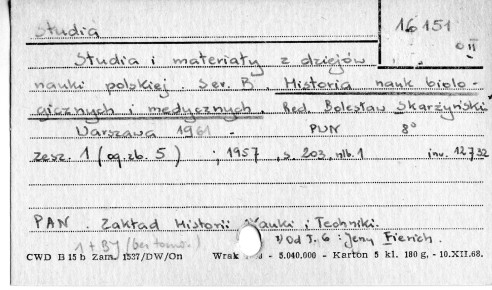 Studia
16 151
0 II
Studia i materiały z dziejów
nauki polskiej. Ser. B Historia nauk biolo-
gicznych i medycznych. Red. Bolesław Skarżyński¹⁾
Warszawa 1961 - PWN 8°
zesz. 1 (og. zb. 5) ; 1957 , s. 203, nlb. 1 inv. 12732
PAN. Zakład Historii Nauki i Techniki.
1 + BJ (bez tomu.)
¹⁾ Od T. 6 : Jerzy Fierich.
CWD B 15 b Zam. 1537/DW/On Wrak - 5.040.000 - Karton 5 kl. 180 g. - 10.XII.68.